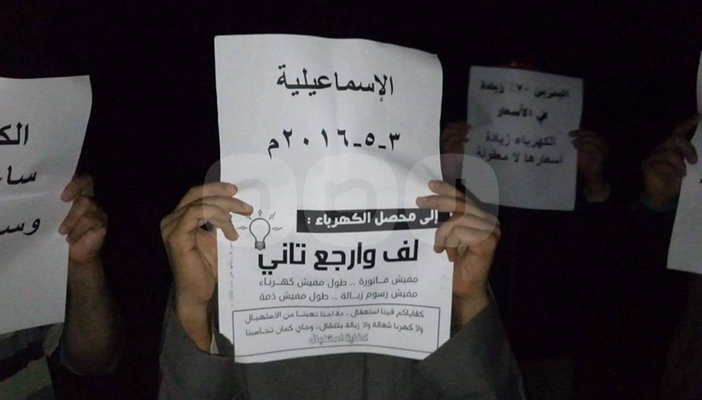 الإسماعيلية
٣-٥-٢٠١٦م
إلى محصل الكهرباء :
لف وارجع تاني
مفيش فاتورة .. طول مفيش كهرباء
مفيش رسوم زبالة .. طول مفيش ذمة
كفاياكم فينا استغفال .. ده احنا تعبنا من الاستهبال
ولا كهربا شغالة ولا زبالة بتتشال .. وجاي كمان تحاسبنا
البنزين ٧٠٪ زيادة
في الأسعار
الكهرباء زيادة
أسعارها لا معقولة
الك
سا
وس